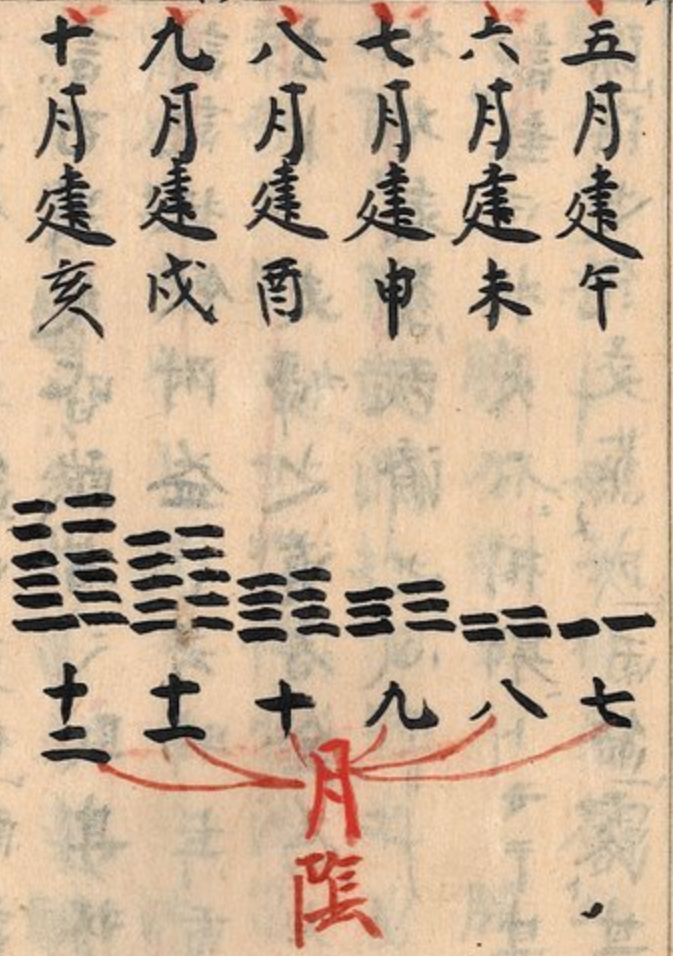 五月建午
六月建未
七月建申
八月建酉
九月建戌
十月建亥
七
八
九
十
十一
十二
月
陰